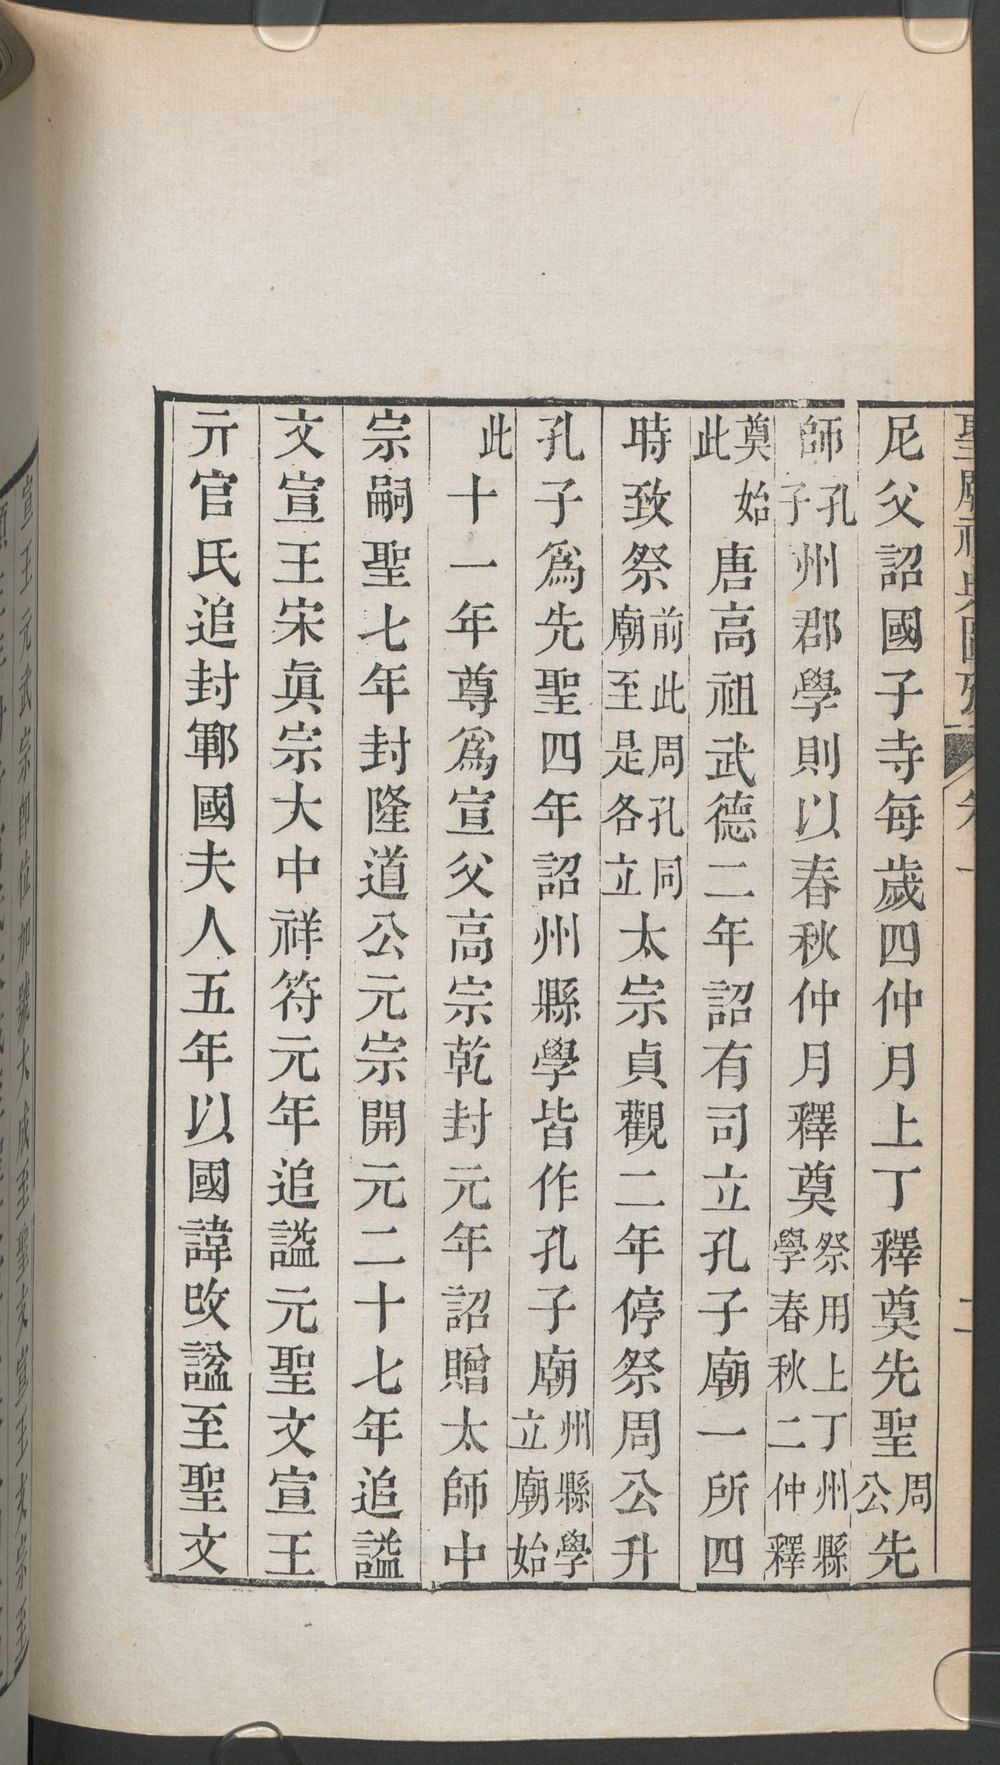 聖廟祀典圖攷 卷一 二
尼父詔國子寺每歲四仲月上丁釋奠先聖周公先
師孔子州郡學則以春秋仲月釋奠祭用上丁州縣學春秋二仲釋
奠始此唐高祖武德二年詔有司立孔子廟一所四
時致祭前此周孔同廟至是各立太宗貞觀二年停祭周公升
孔子爲先聖四年詔州縣學皆作孔子廟州縣學立廟始
此十一年尊爲宣父高宗乾封元年詔贈太師中
宗嗣聖七年封隆道公元宗開元二十七年追謚
文宣王宋眞宗大中祥符元年追謚元聖文宣王
亓官氏追封鄆國夫人五年以國諱改諡至聖文
宣王元武宗卽位加號大成至聖文宣王文宗至